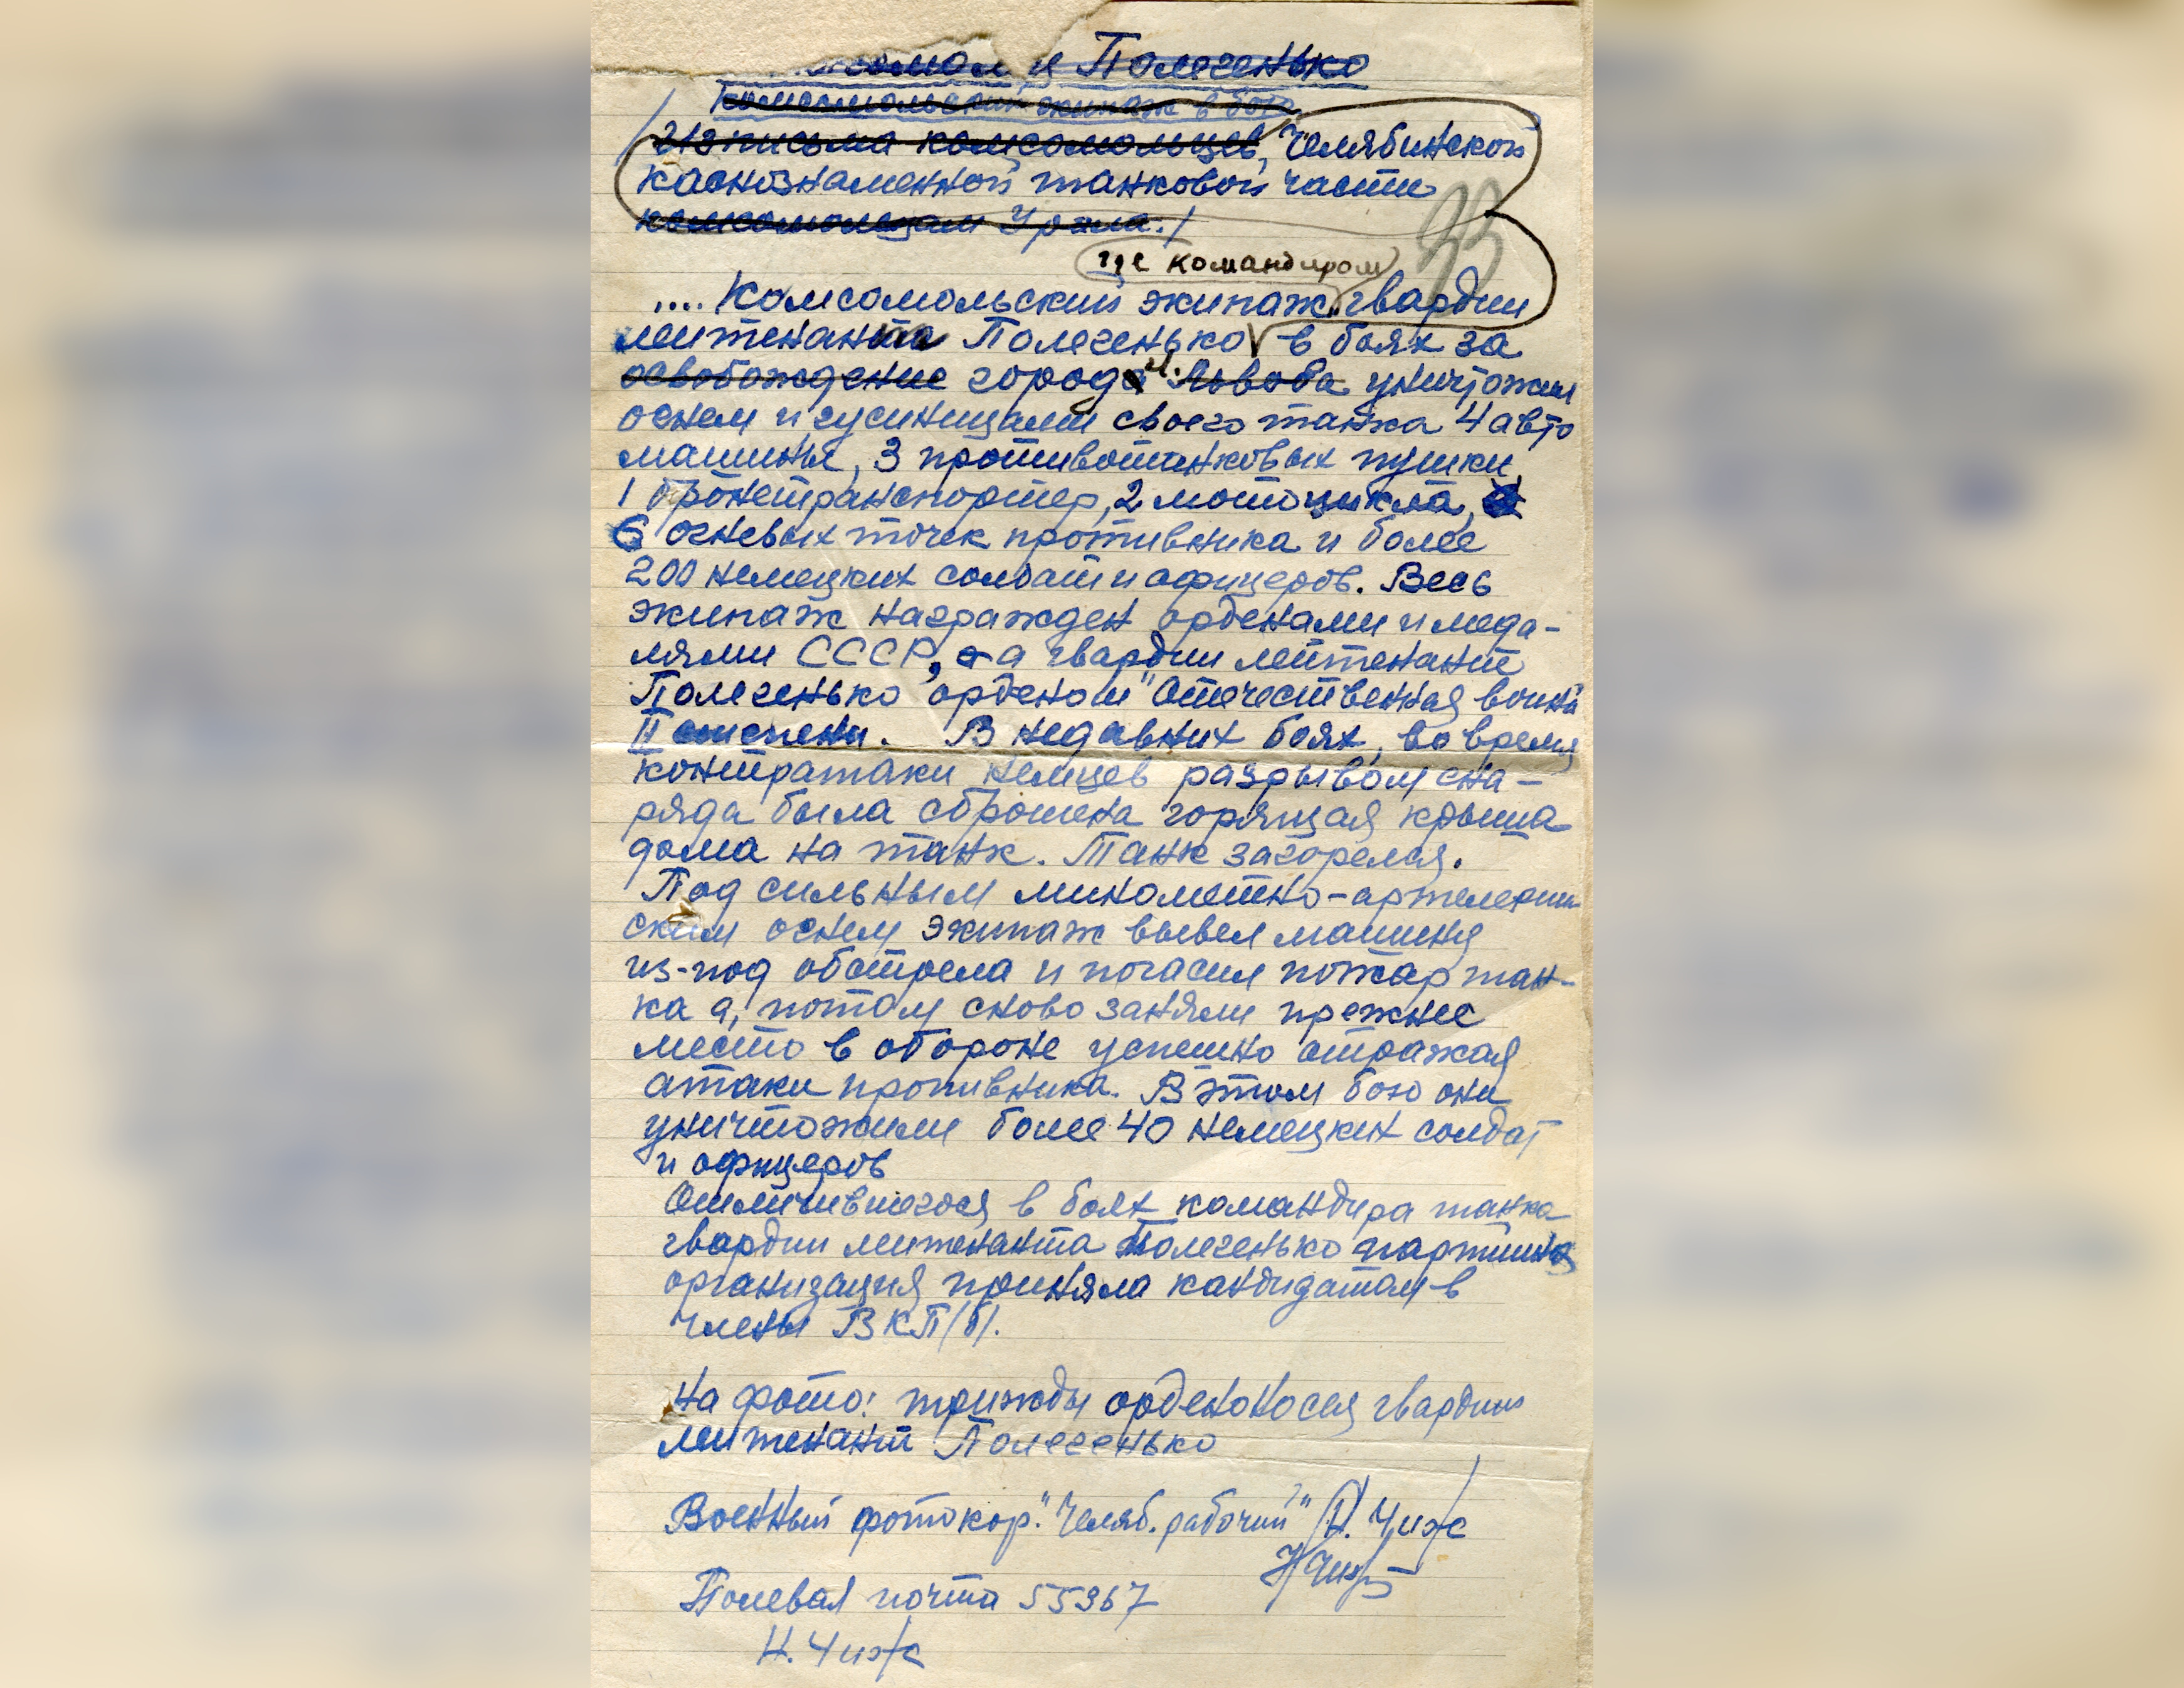 и Полегенько
Комсомольский экипаж в бою
Из письма комсомольцев, Челябинской
каснознаменной танковой части
комсомольцам Урала./
33
где командиром
.... Комсомольский экипаж гвардии
лейтенанта Полегенько в боях за
освобождение города Львова уничтожил
огнем и гусеницами своего танка 4 авто
машины, 3 противотанковых пушки,
1 бронетранспортер, 2 мотоцикла,
6 огневых точек противника и более
200 немецких солдат и офицеров. Весь
экипаж награжден орденами и меда-
лями СССР, а гвардии лейтенант
Полегенько орденом "Отечественная война
II степени. В недавних боях, во время
контратаки немцев разрывом сна-
ряда была сброшена горящая крыша
дома на танк. Танк загорелся.
Под сильным минометно-артелерий
ским огнем экипаж вывел машину
из-под обстрела и погасил пожар тан-
ка а, потом сново заняли прежнее
место в обороне успешно отражая
атаки противника. В этом бою они
уничтожили более 40 немецких солдат
и офицеров
Отличившегося в боях командира танка
гвардии лейтенанта Полегенько партийна
организация приняла кандидатом в
члены ВКП/б/.
На фото: трижды орденоносец гвардии
лейтенант Полегенько
Военный фотокор. "Челяб. рабочий" /Н. Чиж/
НЧиж
Полевая почта 55367
Н. Чиж